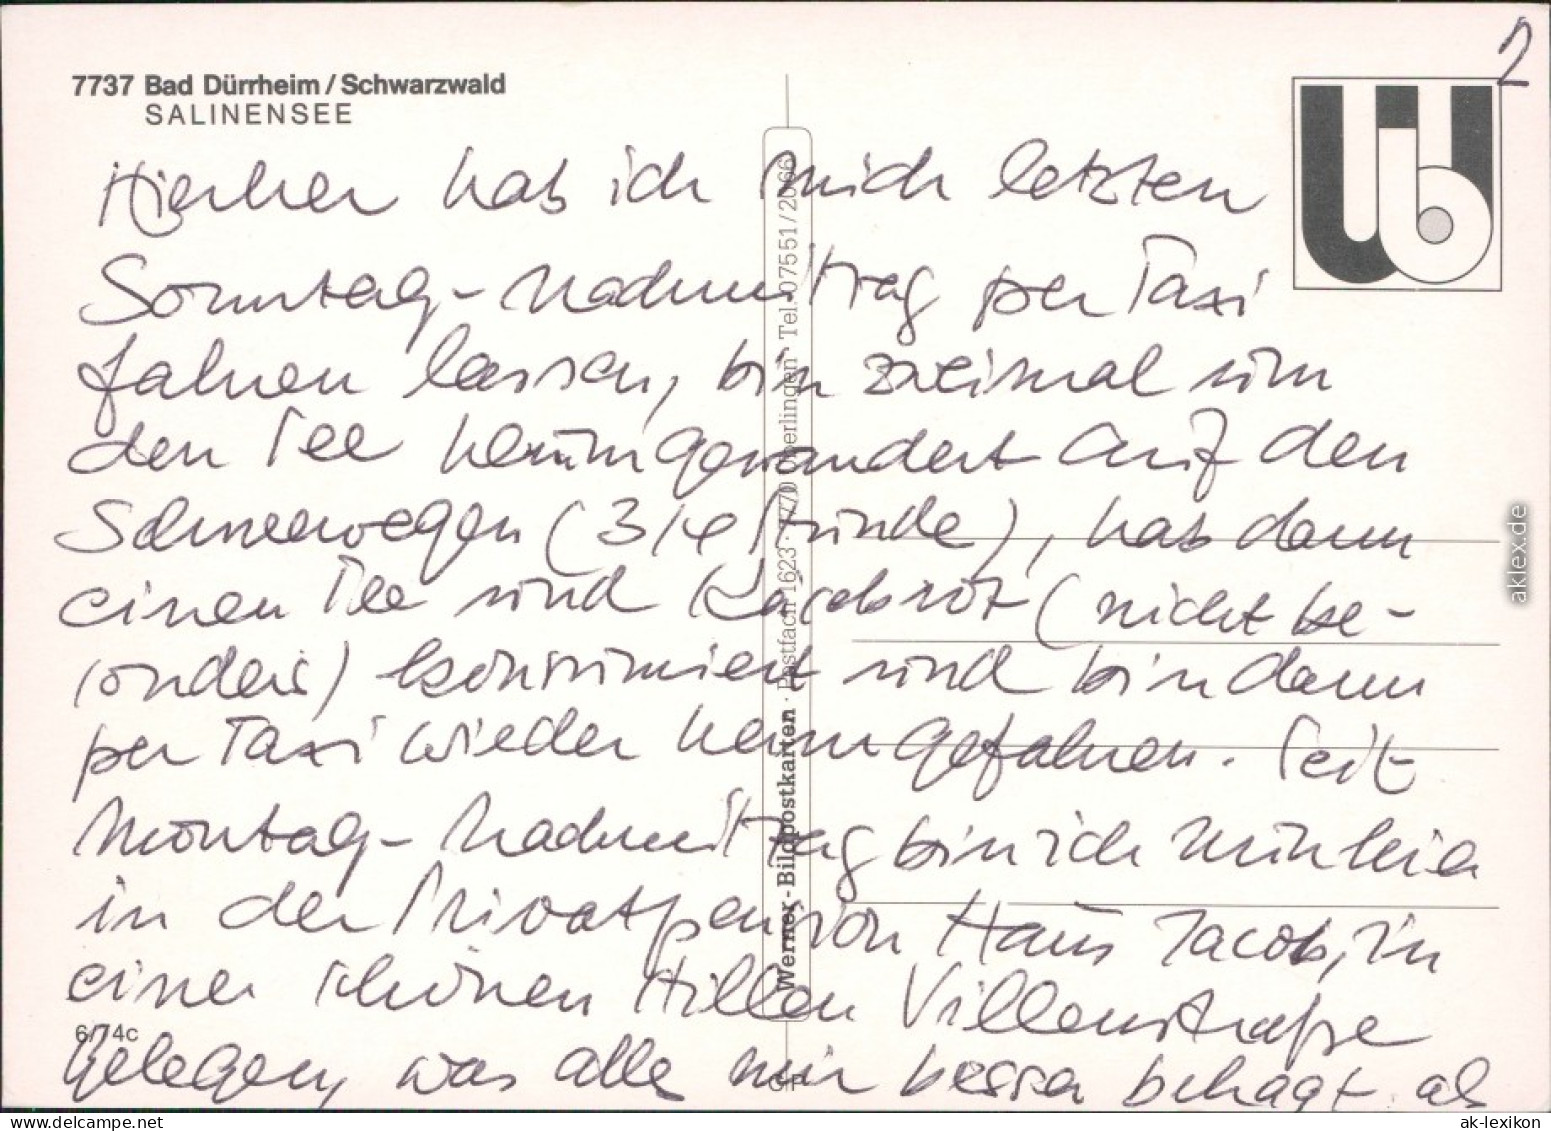 2
7737 Bad Dürrheim / Schwarzwald
SALINENSEE
Hierher hab ich mich letzten
Sonntag-Nachmittag per Taxi
fahren lassen, bin zweimal um
den See herumgewandert auf den
Schneewegen (3/4 Stunde), hab dann
einen Tee und Käsebrot (nicht be-
sonders) konsumiert und bin dann
per Taxi wieder heimgefahren. Seit
Montag-Nachmittag bin ich nun hier
in der Privatpension Haus Jacob, in
einer schönen stillen Villenstraße
gelegen, was alles mir besser behagt als
6/74c
Werner-Bildpostkarten · Postfach 1623 · 7770 Überlingen · Tel. 07551/2066
aklex.de
ak-lexikon